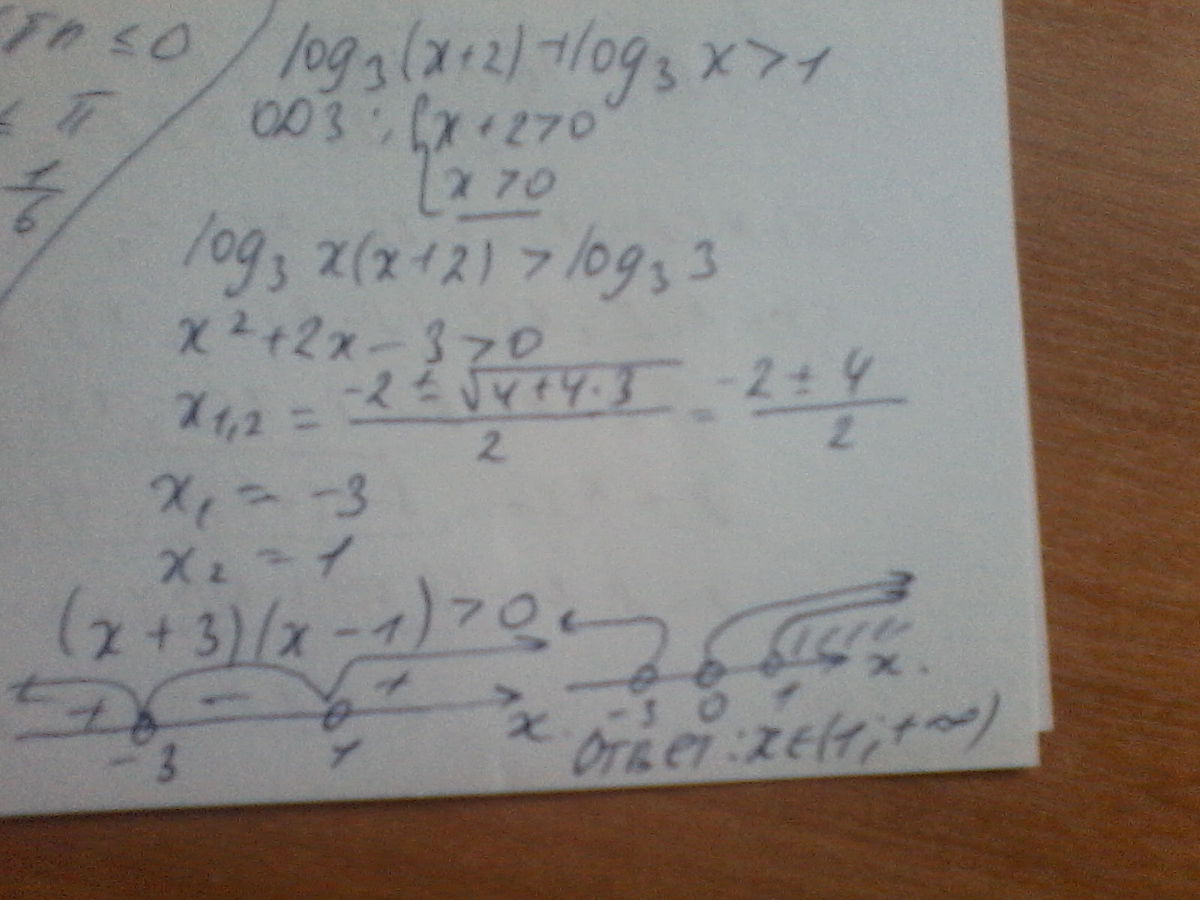 πn ≤ 0
≤ π
1/6
log₃(x+2)+log₃ x > 1
ОДЗ: { x+2>0
x>0
log₃ x(x+2) > log₃ 3
x²+2x-3>0
x₁,₂ = (-2 ± √(4+4·3))/2 = (-2 ± 4)/2
x₁ = -3
x₂ = 1
(x+3)(x-1)>0
+ - + x
-3 1
-3 0 1 x.
Ответ: x∈(1;+∞)